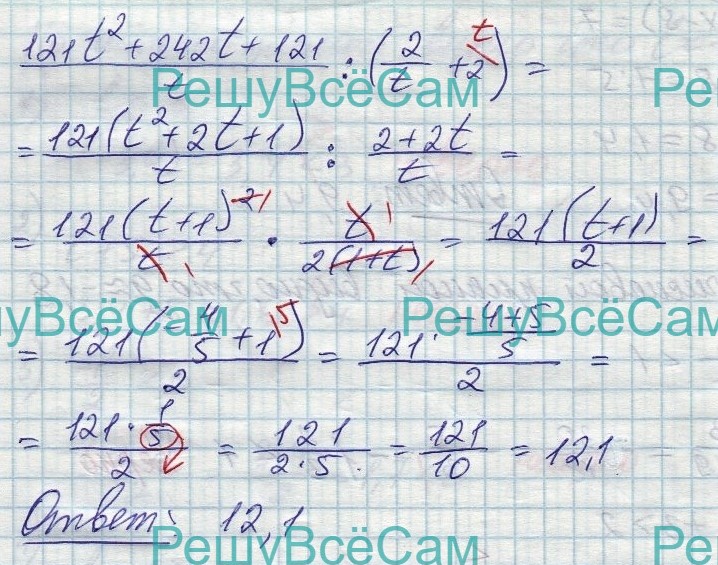 (121t² + 242t + 121)/t : (2/t + 2) =
РешуВсёСам
= 121(t² + 2t + 1)/t : (2 + 2t)/t =
= 121(t+1)²/t · t/(2(1+t)) = 121(t+1)/2 =
= 121(-4/5 + 1)/2 = 121 · (-4+5)/5 / 2 =
= 121 · 1/5 / 2 = 121/(2·5) = 121/10 = 12,1
Ответ: 12,1
РешуВсёСам